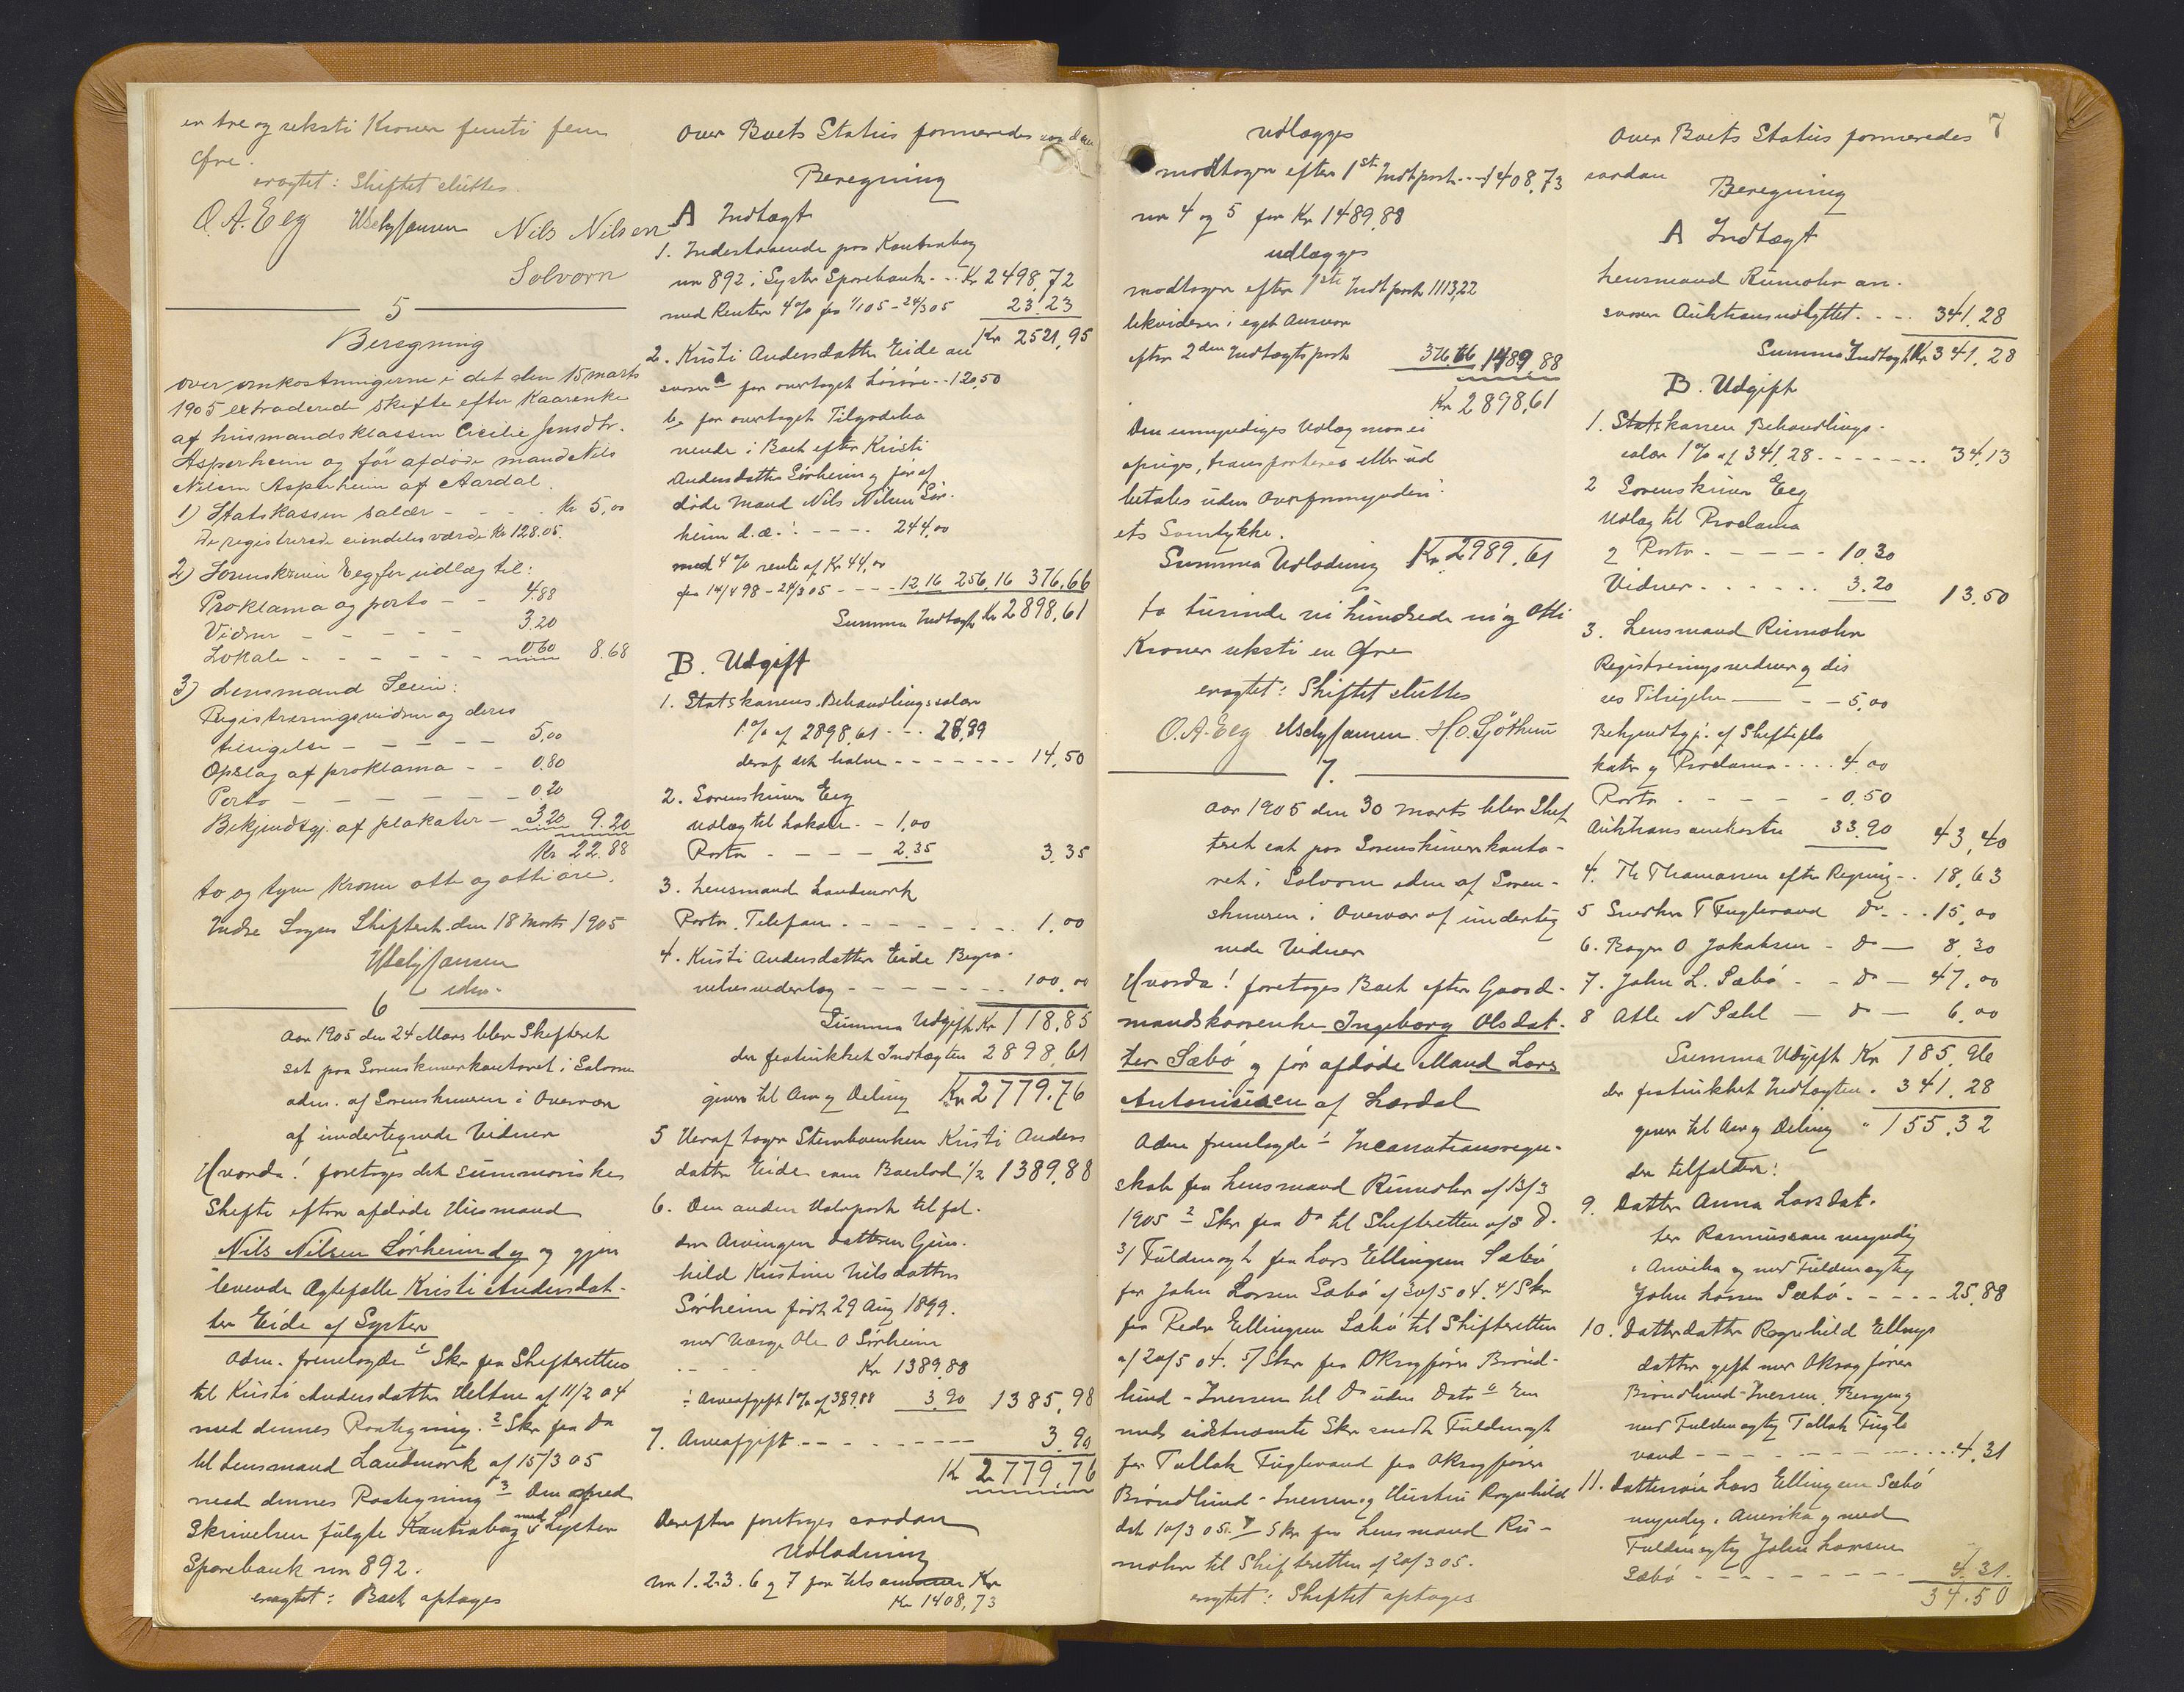 en tre og seksti Kroner femti fem
Øre.
eragtet: Skiftet sluttes.
O. A. Eeg Nils Nilsen
Solvorn
5
Beregning
over omkostningerne i det den 15 marts
1905 extraderede skifte efter Kaarenke
af husmandsklassen Cecilie Jensdtr.
Asperheim og før afdøde mand Nils
Nilsen Asperheim af Aardal.
1) Statskassen salær - - - Kr 5,00
De registrerede eiendeles værdi Kr 128.05.
2) Sorenskriver Eeg for udlæg til:
Proklama og porto - - 4.88
Vidner - - - - - 3.20
Lokale - - - - - - 0.60 8.68
3) Lensmand Seim:
Registreringsvidner og deres
tilsigelse - - - - - 5,00
Opslag af proklama - - 0.80
Porto - - - - - - 0.20
Bekjendtgj. af plakater - 3.20 9.20
Kr 22.88
to og tyve Kroner otte og otti øre.
Indre Sogns Skifteret den 18 Marts 1905
6
Aar 1905 den 24 Mars blev Skifteret
sat paa Sorenskriverkontoret i Solvorn
adm. af Sorenskriveren i Overvær
af undertegnede Vidner
Hvorda! foretoges det summariske
Skifte efter afdøde Husmand
Nils Nilsen Sørheim og gjen
levende Ægtefælle Kristi Andersdat-
ter Eide af Lyster
Adm. fremlagde 1 Skr fra Skifteretten
til Kristi Andersdatter af 11/2 04
med dennes Paategning. 2 Skr fra Do
til Lensmand Landmark af 15/3 05
med dennes Paategning 3 Den
Skrivelsen fulgte Kontrabog med Lyster
Sparebank nr 892.
eragtet: Boet optages
Over Boets Status formeredes saadan
Beregning
A Indtægt
1. Indestaaende paa Kontrabog
nr 892 i Lyster Sparebank - - Kr 2498,72
med Renter 4% fra 1/1 05 - 24/3 05 23.23
Kr 2521,95
2. Kristi Andersdatter Eide an
svarer a for overtaget Løsøre - - 120,50
b, for overtaget Tilgodeha
vende i Boet efter Kristi
Andersdatter Sørheim og før af
døde Mand Nils Nilsen Sør-
heim d.æ.: - - - - 244,00
med 4% rente af Kr 44,00
fra 14/4 98 - 24/3 05 - - - 12.16 256,16 376,66
Summa Indtægt Kr 2898,61
B. Udgift
1. Statskassens Behandlingssalær
1% af 2898,61 - - 28,99
deraf det halve - - - - - - - 14,50
2. Sorenskriver Eeg
Udlæg til Lokale - - 1,00
Porto - - - - 2.35 3.35
3. Lensmand Landmark
Porto. Telefon - - - - - - - - 1.00
4. Kristi Andersdatter Eide Begra-
velsesvederlag - - - - - - - 100,00
Summa Udgift Kr 118.85
der fratrukket Indtægten 2898,61
giver til Arv og Deling Kr 2779,76
5 Heraf tager Stervboenken Kristi Anders
datter Eide som Boeslod 1/2 1389,88
6. Den anden Halvpart tilfal-
der Arvingen Datteren Gun-
hild Kristine Nilsdatter
Sørheim født 29 Aug 1899.
med Værge Ole O Sørheim
- - - Kr 1389,88
÷ Arveafgift 1% af 389.88 3,90 1385,98
7. Arveafgift - - - - - - - - 3.90
Kr 2779,76
Derefter foretoges saadan
Udlodning
Nr 1. 2. 3. 6 og 7 for tilsammen Kr
Kr 1408,73
udlægges
modtagen efter 1ste Indt.post - - 1408,73
nr 4 og 5 for Kr 1489,88
udlægges
modtagen efter 1ste Indt post 1113,22
likviderer i eget Ansvar
efter 2den Indtægtspost 376.66 1489,88
Kr 2898,61
Den umyndiges Udlæg maa ei
opsiges, transporteres eller ud
betales uden Overformynderi-
ets Samtykke.
Summa Udlodning Kr 2989,61
to tusinde ni hundrede ni og Otti
Kroner seksti en Øre
eragtet: Skiftet sluttes
O. A. Eeg
7.
Aar 1905 den 30 Marts blev Skif
teret sat paa Sorenskriverkonto-
ret i Solvorn adm. af Soren-
skriveren i Overvær af underteg
nede Vidner
Hvorda! foretoges Boet efter Gaard-
mandskaarenke Ingeborg Olsdat-
ter Sæbø og før afdøde Mand Lars
Antonissen af Lærdal
Adm fremlagde 1 Incassationsregn-
skab fra Lensmand Rumohr af 13/3
1905 2 Skr fra Do til Skifteretten af s D.
3/ Fuldmagt fra Lars Ellingsen Sæbø
for John Larsen Sæbø af 30/5 04. 4/ Skr
fra Peder Ellingsen Sæbø til Skifteretten
af 20/5 04. 5/ Skr fra Oksagfører Brønd-
lund - Iversen til Do uden Dato 6 En
med sidstnævnte Skr sendt Fuldmagt
for Tollak Fuglevand fra Oksagfører
Brøndlund - Iversen og Hustru Ragnhild
dat 10/3 05. 7 Skr fra Lensmand Ru-
mohr til Skifteretten af 20/3 05.
eragtet: Skiftet optages
7
Over Boets Status formeredes
saadan
Beregning
A Indtægt
Lensmand Rumohr an-
svarer Auktionsudbyttet - - - 341.28
Summa Indtægt Kr 341,28
B. Udgift
1. Statskassens Behandlings-
salær 1% af 341,28 - - - - - - 34,13
2 Sorenskriver Eeg
Udlæg til Proclama
2 Porto - - - - - 10.30
Vidner - - - - - - 3.20 13.50
3. Lensmand Rumohr
Registreringsvidner og dis
ses Tilsigelse - - - 5,00
Bekjendtgj. af Skiftepla
kater og Proclama - - - - 4.00
Porto - - - - - - 0.50
Auktions omkostn 33.90 43,40
4. Th Thomassen efter Regning - - 18,63
5 Snedker T Fuglevand Do - - 15,00
6. Bager O Jakobsen - Do - 8.30
7. John L. Sæbø - - Do - 47,00
8 Atle N Sæhl - Do - 6,00
Summa Udgift Kr 185.96
der fratrukket Indtægten - 341.28
giver til Arv og Deling " 155.32
der tilfalder:
9. Datter Anna Larsdat-
ter Rasmussen myndig
i Amerika og med Fuldmægtig
John Larsen Sæbø - - - - - 25,88
10. Datterdatter Ragnhild Ellings
datter gift med Oksagfører
Brøndlund-Iversen, Bergen og
med Fuldmægtig Tollak Fugle
vand - - - - - - - - - - 4.31
11. Dattersøn Lars Ellingsen Sæbø
myndig i Amerika og med
Fuldmægtig John Larsen
Sæbø - - - - - - - - - 4.31.
34.50